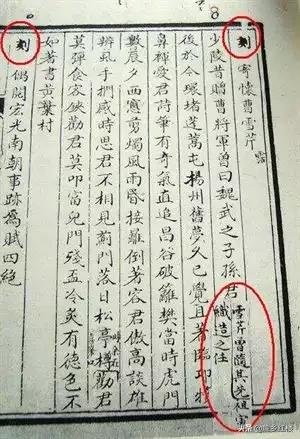 刻
寄懷曹雪芹 霑
少陵昔贈曹將軍曾曰魏武之子孫君
雪芹曾隨其先祖寅
織造之任
後於今環堵蓬蒿屯揚州舊夢久已覺且著臨邛犢
鼻褌愛君詩筆有奇氣直追昌谷破籬樊當時虎門
數晨夕西窗剪燭風雨昏接䍦倒著容君傲高談雄
辨虱手捫感時思君不相見薊門落日松亭樽勸君
莫彈食客鋏勸君莫叩富兒門殘盃冷炙有德色不
如著書黃葉村
刻
偶閱宏光南朝事跡為賦四絕